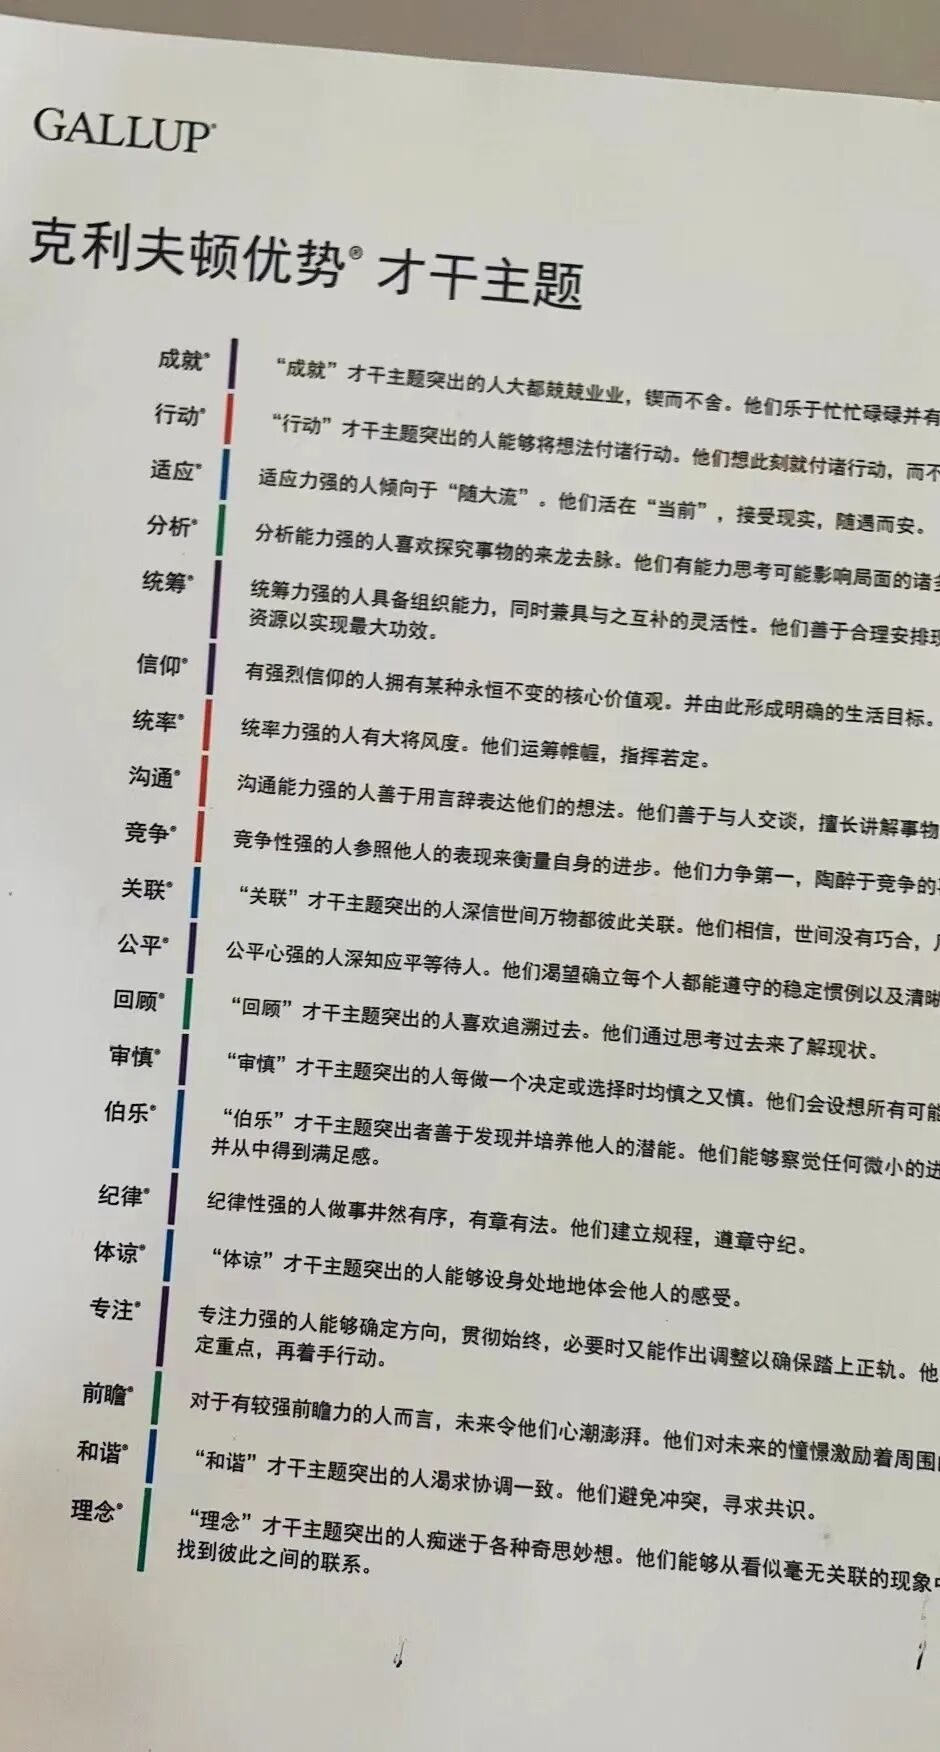 GALLUP®
克利夫顿优势® 才干主题
成就® “成就”才干主题突出的人大都兢兢业业，锲而不舍。他们乐于忙忙碌碌并有
行动® “行动”才干主题突出的人能够将想法付诸行动。他们想此刻就付诸行动，而不
适应® 适应力强的人倾向于“随大流”。他们活在“当前”，接受现实，随遇而安。
分析® 分析能力强的人喜欢探究事物的来龙去脉。他们有能力思考可能影响局面的诸多
统筹® 统筹力强的人具备组织能力，同时兼具与之互补的灵活性。他们善于合理安排现
资源以实现最大功效。
信仰® 有强烈信仰的人拥有某种永恒不变的核心价值观。并由此形成明确的生活目标。
统率® 统率力强的人有大将风度。他们运筹帷幄，指挥若定。
沟通® 沟通能力强的人善于用言辞表达他们的想法。他们善于与人交谈，擅长讲解事物
竞争® 竞争性强的人参照他人的表现来衡量自身的进步。他们力争第一，陶醉于竞争的
关联® “关联”才干主题突出的人深信世间万物都彼此关联。他们相信，世间没有巧合，
公平® 公平心强的人深知应平等待人。他们渴望确立每个人都能遵守的稳定惯例以及清晰
回顾® “回顾”才干主题突出的人喜欢追溯过去。他们通过思考过去来了解现状。
审慎® “审慎”才干主题突出的人每做一个决定或选择时均慎之又慎。他们会设想所有可能
伯乐® “伯乐”才干主题突出者善于发现并培养他人的潜能。他们能够察觉任何微小的进
并从中得到满足感。
纪律® 纪律性强的人做事井然有序，有章有法。他们建立规程，遵章守纪。
体谅® “体谅”才干主题突出的人能够设身处地地体会他人的感受。
专注® 专注力强的人能够确定方向，贯彻始终，必要时又能作出调整以确保踏上正轨。他
定重点，再着手行动。
前瞻® 对于有较强前瞻力的人而言，未来令他们心潮澎湃。他们对未来的憧憬激励着周围
和谐® “和谐”才干主题突出的人渴求协调一致。他们避免冲突，寻求共识。
理念® “理念”才干主题突出的人痴迷于各种奇思妙想。他们能够从看似毫无关联的现象中
找到彼此之间的联系。